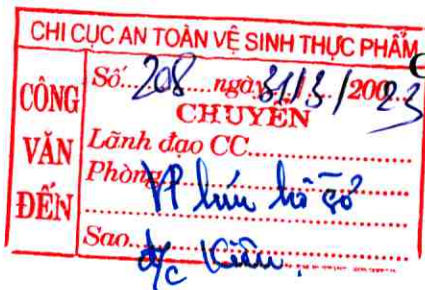 CHI CỤC AN TOÀN VỆ SINH THỰC PHẨM
CÔNG VĂN ĐẾN
Số: 208 ngày 31/3/20023
CHUYỂN
Lãnh đạo CC
Phòng VP lưu hồ sơ
Sao đ/c